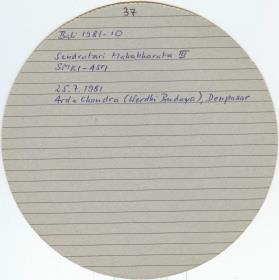 37
Bali 1981-10
Sendratari Mahabharata III
SMKI-ASTI
25.7.1981
Arda Chandra (Werdhi Budaya), Denpasar